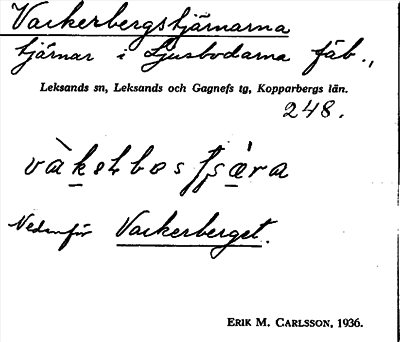 Vackerbergstjärnarna
tjärnar i Ljusbodarna fäb.,
Leksands sn, Leksands och Gagnefs tg, Kopparbergs län.
248.
Nedanför Vackerberget.
ERIK M. CARLSSON, 1936.